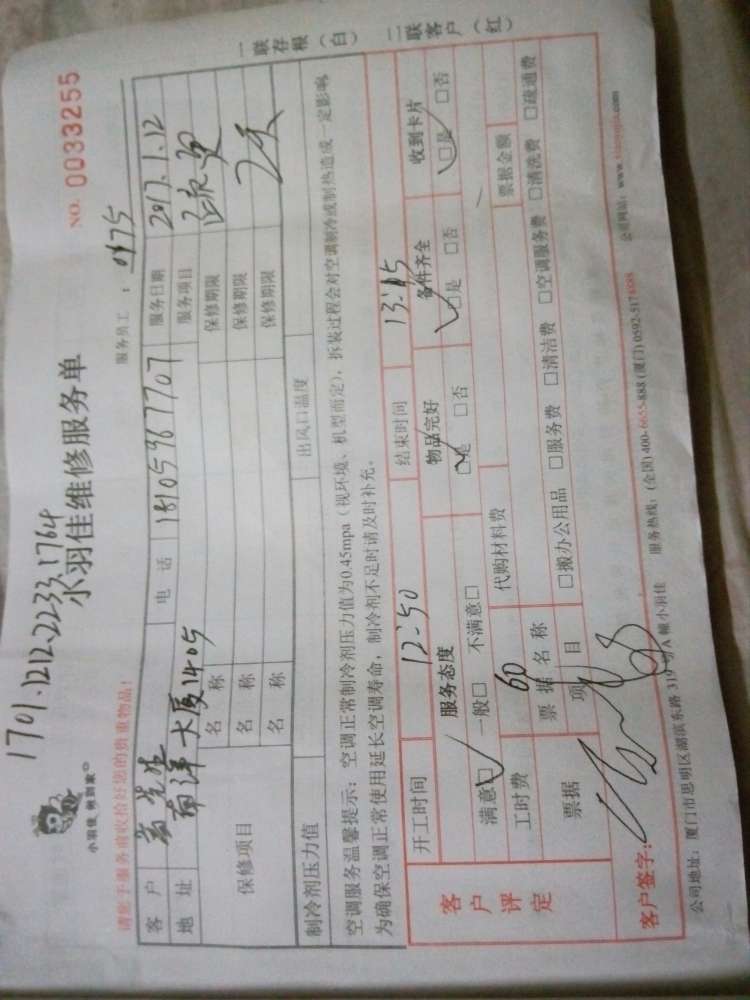 1701.1212.2233.1764
小羽佳维修服务单
NO. 0033255
小羽佳 倾到家
请您于服务前收拾好您的贵重物品!
服务员工:0975
客户 先生 电话 18105967707 服务日期 2017.1.12
地址 南洋大厦1405 服务项目
保修项目
名称 保修期限
名称 保修期限
名称 保修期限
制冷剂压力值 出风口温度
空调服务温馨提示:空调正常制冷剂压力值为0.45mpa(视环境、机型而定),拆装过程会对空调制冷或制热造成一定影响
为确保空调正常使用延长空调寿命,制冷剂不足时请及时补充。
开工时间 12:50 结束时间 13:15
客户评定
服务态度 物品完好 备件齐全 收到卡片
满意□ 一般□ 不满意□ □是 □否 □是 □否 □是 □否
工时费 60 代购材料费 票据金额
票据 票据名称
项目 □搬办公用品 □服务费 □清洁费 □空调服务费 □清洗费 □疏通费
客户签字:
公司地址:厦门市思明区湖滨东路319号A幢小羽佳 服务热线:(全国)400-6655-888(厦门)0592-5174888 公司网站:
一联存根(白)
二联客户(红)